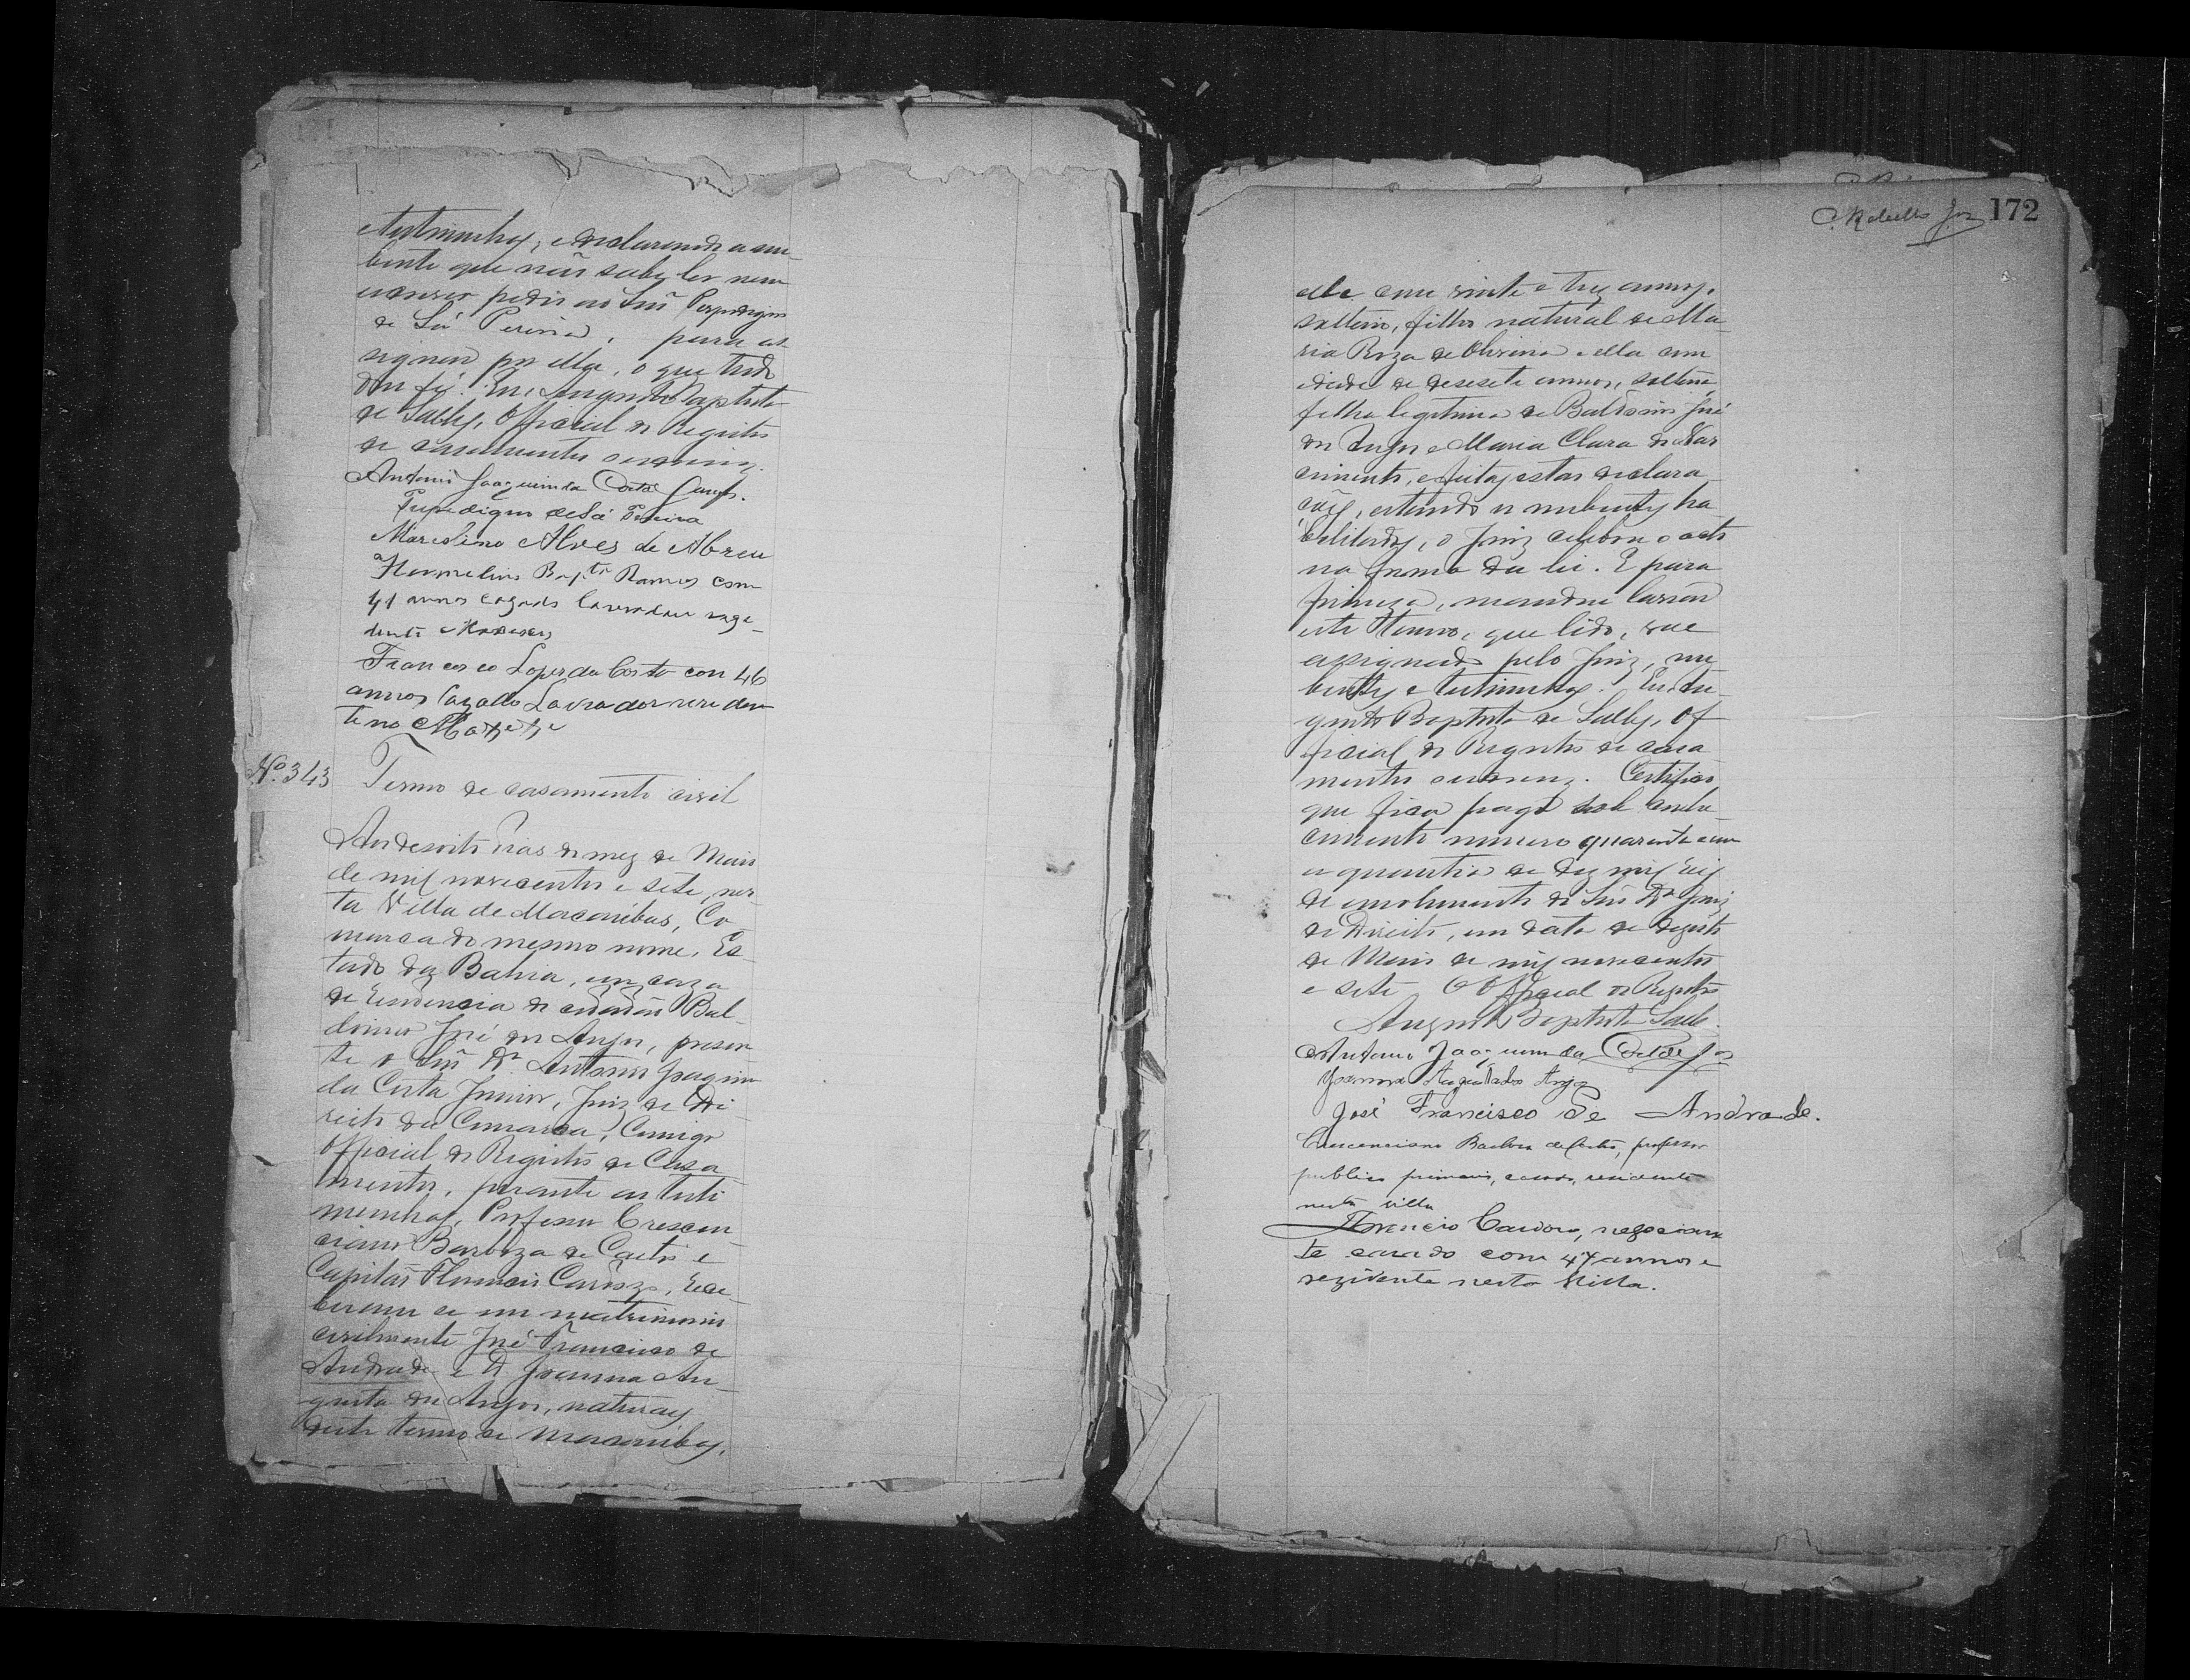 e testimunhas, e declarando a nu-
bente que não sabe ler nem
escrever pediu ao Snr. Perpedigno
de Sá Pereira, para as-
signar por ella, o que tudo
dou fé. Eu, Augusto Baptista
de Salles, Official do Registro
de casamentos escrevi.
Antonio Joaquim da Costa Junior.
Perpedigno de Sá Pereira
Marcolino Alves de Abreu
Hermelino Bapta Ramos com
41 annos cazado lavrador rezi-
dente
Francisco Lopes da Costa con 46
annos Cazado Lavrador reziden
te no
No. 343 Termo de casamento civil
Aos desoito dias do mez de Maio
de mil novecentos e sete, nes-
ta Villa de Macaúbas, Co-
marca do mesmo nome, Es-
tado da Bahia, em caza
de residencia do cidadão Bal-
doino José dos Anjos, presen-
te o Snr. Dr. Antonio Joaquim
da Costa Junior, Juiz de Di-
reito da Comarca, Comigo
Official do Registro de Casa-
mentos, perante as testi-
munhas, Professor Crescen-
ciano Barboza de Castro e
Capitão Florencio Cardozo, rece-
beram se em matrimonio
civilmente José Francisco de
Andrade e D. Joanna Au-
gusta dos Anjos, naturaes
deste termo de Macaúbas,
Rebello Jor 172
elle com vinte e trez annos,
solteiro, filho natural de Ma-
ria Roza de Oliveira e ella com
idade de desesete annos, solteira
filha legitima de Baldoino José
dos Anjos e Maria Clara do Nas-
cimento, e feitas estas declara-
ções, estando os nubentes ha-
bilitados, o Juiz celebrou o acto
na forma da lei. E para
firmeza, mandou lavrar
este termo, que lido, vae
assignado pelo Juiz, nu-
bentes e testimunhas. Eu Au-
gusto Baptista de Salles, Of-
ficial do Registro de casa-
mentos escrevi. Certifico
que fica pago sob conhe-
cimento numero quarenta e um
a quantia de dez mil reis
de emolumento do Snr. Dr. Juiz
de Direito, em data de dezoito
de Maio de mil novecentos
e sete. O Official do Registro
Augusto Baptista Salles.
Antonio Joaquim da Costa Jor
Joanna Augusta dos Anjos
José Francisco de Andrade.
Crescenciano Barboza de Castro, professor
publico primario, casado, residente
nesta villa
Florencio Cardozo, negocian
te casado com 47 annos e
rezidente nesta Villa.